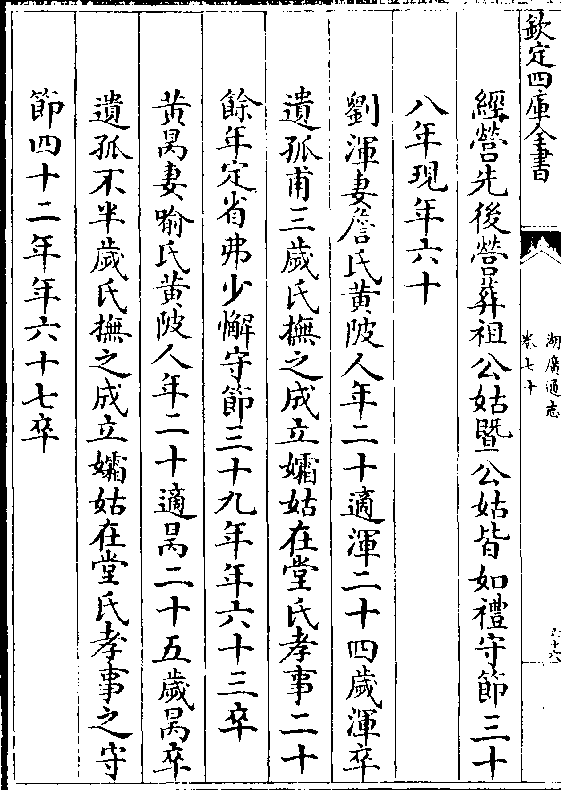 欽定四庫全書
湖廣通志
卷七十
經營先後營葬祖公姑暨公姑皆如禮守節三十
八年現年六十
劉渾妻詹氏黃陂人年二十適渾二十四歲渾卒
遺孤甫三歲氏撫之成立孀姑在堂氏孝事二十
餘年定省弗少懈守節三十九年年六十三卒
黃昺妻喻氏黃陂人年二十適昺二十五歲昺卒
遺孤不半歲氏撫之成立孀姑在堂氏孝事之守
節四十二年年六十七卒